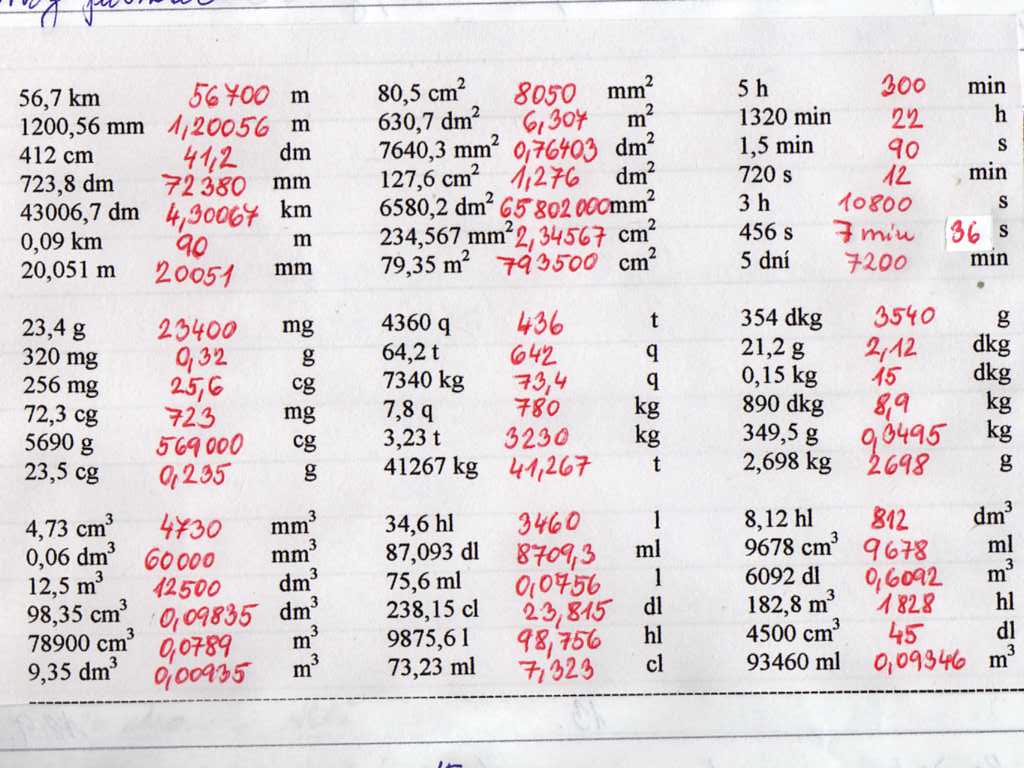 56,7 km 56700 m 80,5 cm² 8050 mm² 5 h 300 min
1200,56 mm 1,20056 m 630,7 dm² 6,307 m² 1320 min 22 h
412 cm 41,2 dm 7640,3 mm² 0,76403 dm² 1,5 min 90 s
723,8 dm 72380 mm 127,6 cm² 1,276 dm² 720 s 12 min
43006,7 dm 4,30067 km 6580,2 dm² 65802000 mm² 3 h 10800 s
0,09 km 90 m 234,567 mm² 2,34567 cm² 456 s 7 min 36 s
20,051 m 20051 mm 79,35 m² 793500 cm² 5 dní 7200 min
23,4 g 23400 mg 4360 q 436 t 354 dkg 3540 g
320 mg 0,32 g 64,2 t 642 q 21,2 g 2,12 dkg
256 mg 25,6 cg 7340 kg 73,4 q 0,15 kg 15 dkg
72,3 cg 723 mg 7,8 q 780 kg 890 dkg 8,9 kg
5690 g 569000 cg 3,23 t 3230 kg 349,5 g 0,3495 kg
23,5 cg 0,235 g 41267 kg 41,267 t 2,698 kg 2698 g
4,73 cm³ 4730 mm³ 34,6 hl 3460 l 8,12 hl 812 dm³
0,06 dm³ 60000 mm³ 87,093 dl 8709,3 ml 9678 cm³ 9678 ml
12,5 m³ 12500 dm³ 75,6 ml 0,0756 l 6092 dl 0,6092 m³
98,35 cm³ 0,09835 dm³ 238,15 cl 23,815 dl 182,8 m³ 1828 hl
78900 cm³ 0,0789 m³ 9875,6 l 98,756 hl 4500 cm³ 45 dl
9,35 dm³ 0,00935 m³ 73,23 ml 7,323 cl 93460 ml 0,09346 m³